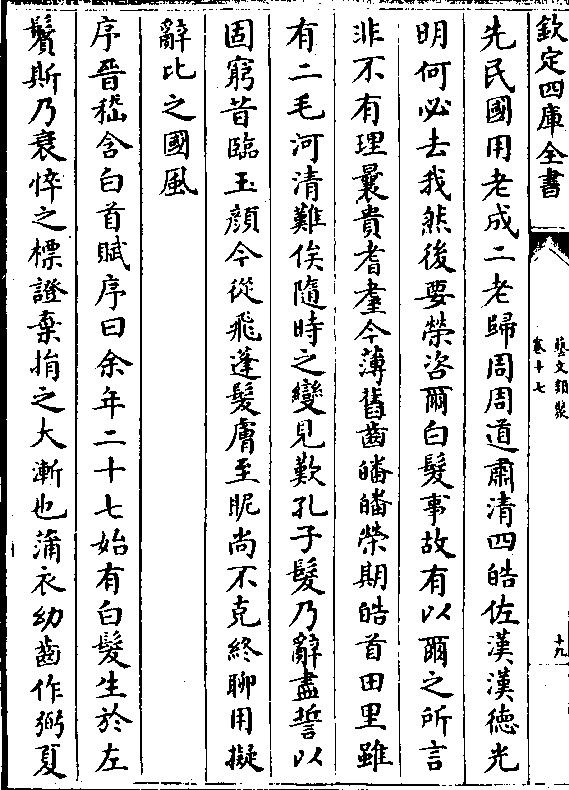 欽定四庫全書
藝文類聚
卷十七
十九
先民國用老成二老歸周周道肅清四皓佐漢漢德光
明何必去我然後要榮咨爾白髮事故有以爾之所言
非不有理曩貴耆耋今薄舊齒皤皤榮期皓首田里雖
有二毛河清難俟隨時之變見歎孔子髮乃辭盡誓以
固窮昔臨玉顔今從飛蓬髮膚至昵尚不克終聊用擬
辭比之國風
序晉嵇含白首賦序曰余年二十七始有白髮生於左
鬢斯乃衰悴之標證棄捐之大漸也蒲衣幼齒作弼夏